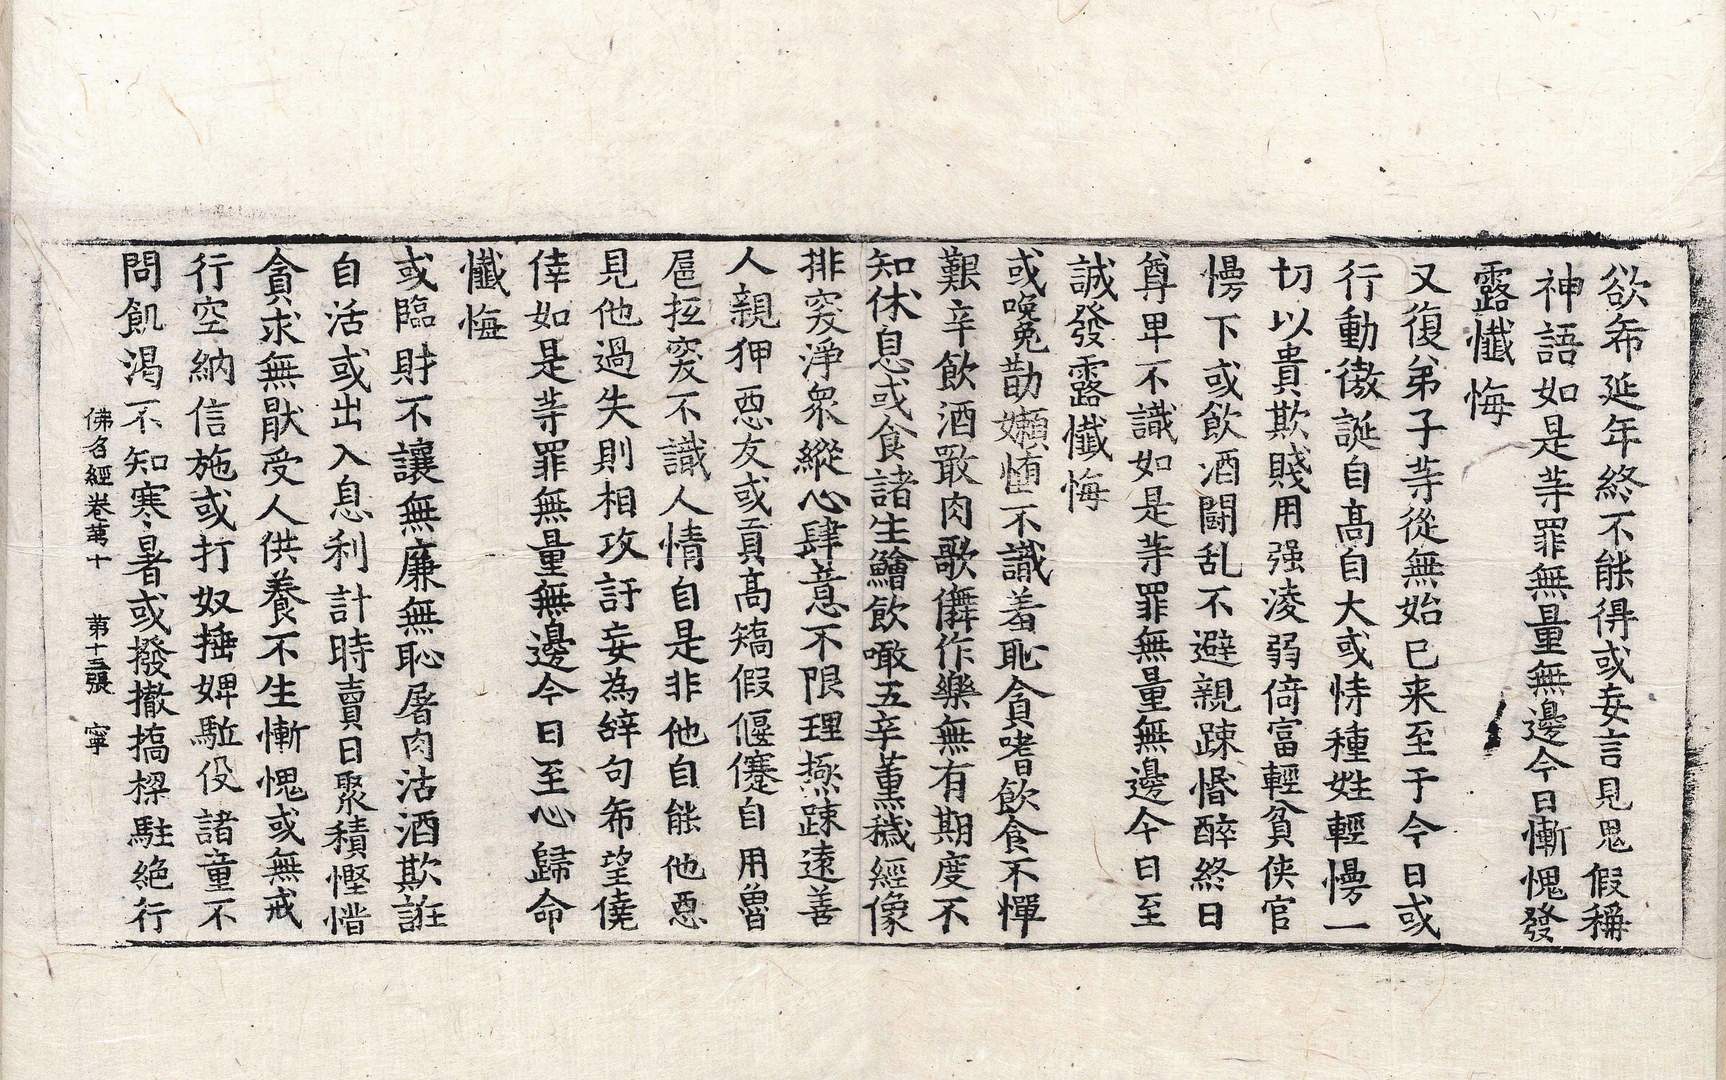 欲希延年終不能得或妄言見鬼假稱
神語如是䓁罪無量無邊今日慚愧發
露懺悔
又復弟子䓁從無始已来至于今日或
行動憿誕自髙自大或恃種姓輕慢一
切以貴欺賤用强淩弱倚富輕貧侠官
慢下或飲酒鬪乱不避親踈惛醉終日
尊卑不識如是䓁罪無量無邊今日至
誠發露懺悔
或晚兔勘嬾惰不識羞恥貪嗜飲食不憚
艱辛飲酒噉肉歌儛作樂無有期度不
知休息或食諸生鱠飲噉五辛薰穢經像
排突淨衆縱心肆意不限理㷼踈遠善
人親狎惡友或貢髙矯假偃蹇自用魯
扈抂突不識人情自是非他自能他惡
見他過失則相攻訐妄為辞句希望僥
倖如是䓁罪無量無邊今日至心歸命
懺悔
或臨財不讓無廉無恥屠肉沽酒欺誑
自活或出入息利計時賣日聚積慳惜
貪求無猒受人供養不生慚愧或無戒
行空納信施或打奴捶婢駈役諸童不
問飢渴不知寒暑或撥撤撟樑駐絶行
佛名經卷苐十　苐十五張　寧